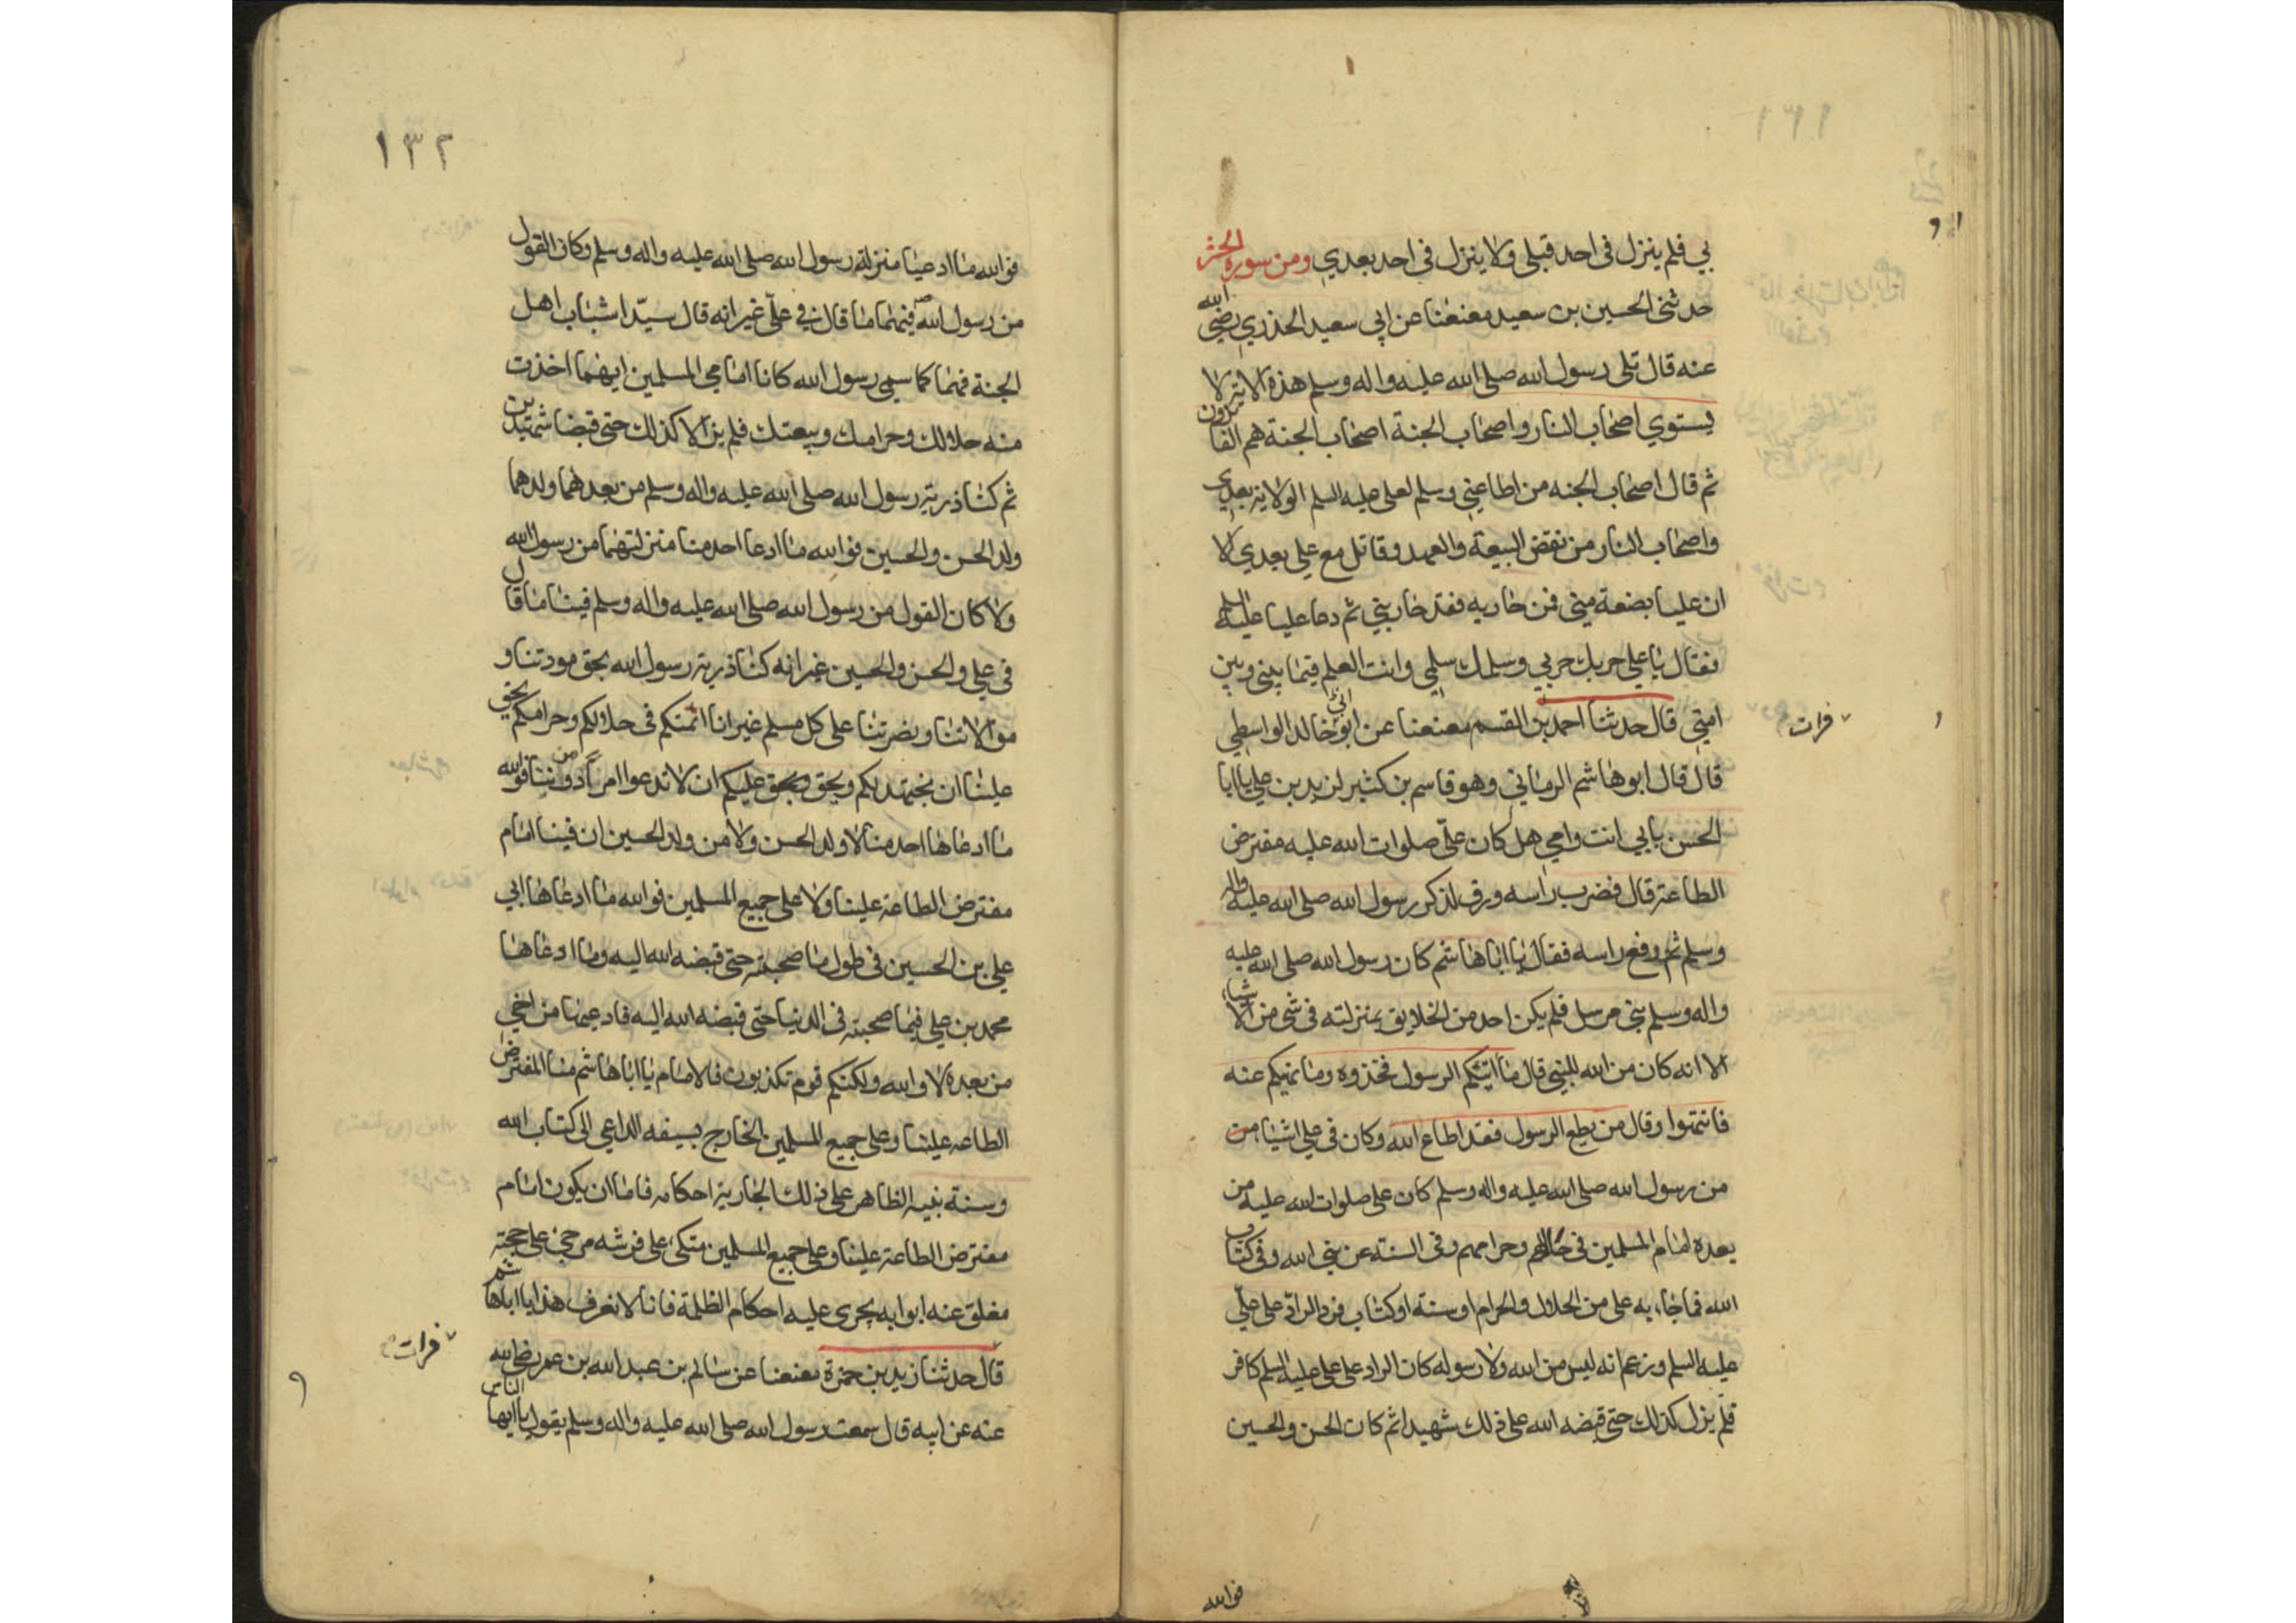 بي فلم ينزل في احد قبلي ولا ينزل في احد بعدي ومن سورة الحشر
حدثني الحسين بن سعيد معنعنا عن ابي سعيد الخذري رضي الله
عنه قال تلى رسول الله صلى الله عليه واله وسلم هذه الاية لا
يستوي اصحاب النار واصحاب الجنة اصحاب الجنة هم الفائزون
ثم قال اصحاب الجنه من اطاعني وسلم لعلي عليه السلم الولاية بعدي
واصحاب النار من نقض البيعة والعهد وقاتل مع علي بعدي الا
ان عليا بضعة مني فمن حاربه فقد حاربني ثم دعا عليا عليه السلم
فقال يا علي حربك حربي وسلمك سلمي وانت العلم فيما بيني وبين
امتي قال حدثنا احمد بن القسم معنعنا عن ابو خالد الواسطي
فرات
قال قال ابو هاشم الرماني وهو قاسم بن كثير لزيد بن علي يا ابا
الحسن بابي انت وامي هل كان علي صلوات الله عليه مفترض
الطاعة قال فضرب راسه ورق لذكر رسول الله صلى الله عليه واله
وسلم ثم رفع راسه فقال يا ابا هاشم كان رسول الله صلى الله عليه
واله وسلم نبي مرسل فلم يكن احد من الخلايق بمنزلته في شي من الاشياء
الا انه كان من الله للنبي قال ما اتيكم الرسول فخذوه وما نهيكم عنه
فانتهوا وقال من يطع الرسول فقد اطاع الله وكان في علي اشياء من
من رسول الله صلى الله عليه واله وسلم كان علي صلوات الله عليه من
بعده امام المسلمين في حلالهم وحرامهم وفي السنة عن نبي الله وفي كتاب
الله فما جاء به علي من الحلال والحرام او سنة او كتاب فرد الراد على علي
عليه السلم وزعم انه ليس من الله ولا رسوله كان الراد على علي عليه السلم كافر
فلم يزل كذلك حتى قبضه الله على ذلك شهيدا ثم كان الحسن والحسين
فوالله
١٣٢
فوالله ما ادعيا منزلة رسول الله صلى الله عليه واله وسلم وكان القول
من رسول الله ص فيهما ما قال في علي غير انه قال سيدا شباب اهل
الجنة فهما كما سمي رسول الله كانا امامي المسلمين ايهما اخذت
منه حلالك وحرامك وبيعتك فلم يزالا كذلك حتى قبضا شهيدين
ثم كنا ذرية رسول الله صلى الله عليه واله وسلم من بعدهما ولدهما
ولد الحسن والحسين فوالله ما ادعا احد منا منزلتهما من رسول الله
ولا كان القول من رسول الله صلى الله عليه واله وسلم فينا ما قال
في علي والحسن والحسين غير انه كنا ذرية رسول الله بحق مودتنا و
موالاتنا ونصرتنا على كل مسلم غير انا ائمتكم في حلالكم وحرامكم بحق
علينا ان نجتهد لكم وبحق وبحق عليكم ان لا تدعوا امرا من دوننا فوالله
ما ادعاها احد منا لا ولد الحسن ولا من ولد الحسين ان فينا امام
مفترض الطاعة علينا ولا على جميع المسلمين فوالله ما ادعاها ابي
علي بن الحسين في طول ما صحبته حتى قبضه الله اليه وما ادعاها
محمد بن علي فيما صحبته في الدنيا حتى قبضه الله اليه فادعيها من اخي
من بعده لا والله ولكنكم قوم تكذبون فالامام يا ابا هاشم منا المفترض
الطاعه علينا وعلى جميع المسلمين الخارج بسيفه الداعي الى كتاب الله
وسنة نبيه الظاهر على ذلك الجارية احكامه فاما ان يكون امام
مفترض الطاعة علينا وعلى جميع المسلمين متكئ على فرشه مرجئ على حجته
مغلق عنه ابوابه يجري عليه احكام الظلمة فانا لا نعرف هذا يا ابا هاشم
قال حدثنا زيد بن حمزة معنعنا عن سالم بن عبد الله بن عمر رضي الله
فرات
عنه عن ابيه قال سمعت رسول الله صلى الله عليه واله وسلم يقول يا ايها الناس